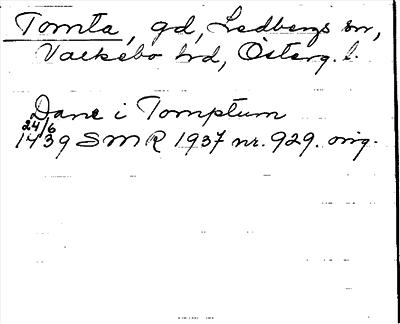 Tomta, gd, Ledbergs sn,
Valkebo hd, Österg. l.
Dane i Tomptum
24/6
1439 SMR 1937 nr. 929. orig.